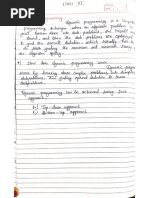 UNIT VI
Dynamic programming is a
programming technique where an algorithm problem is
first broken down into sub problems, the
are saved, and then the sub problems are optimized
to find the overall solution which usually has to
do with finding the maximum and minimum range
the algorithm query.
How does dynamic programming work
works by breaking down complex problems into simpler
subproblems. And finding optimal solution to these
subproblems.
Dynamic programming can be achieved using two
approach
Top-down approach
Bottom-up approach